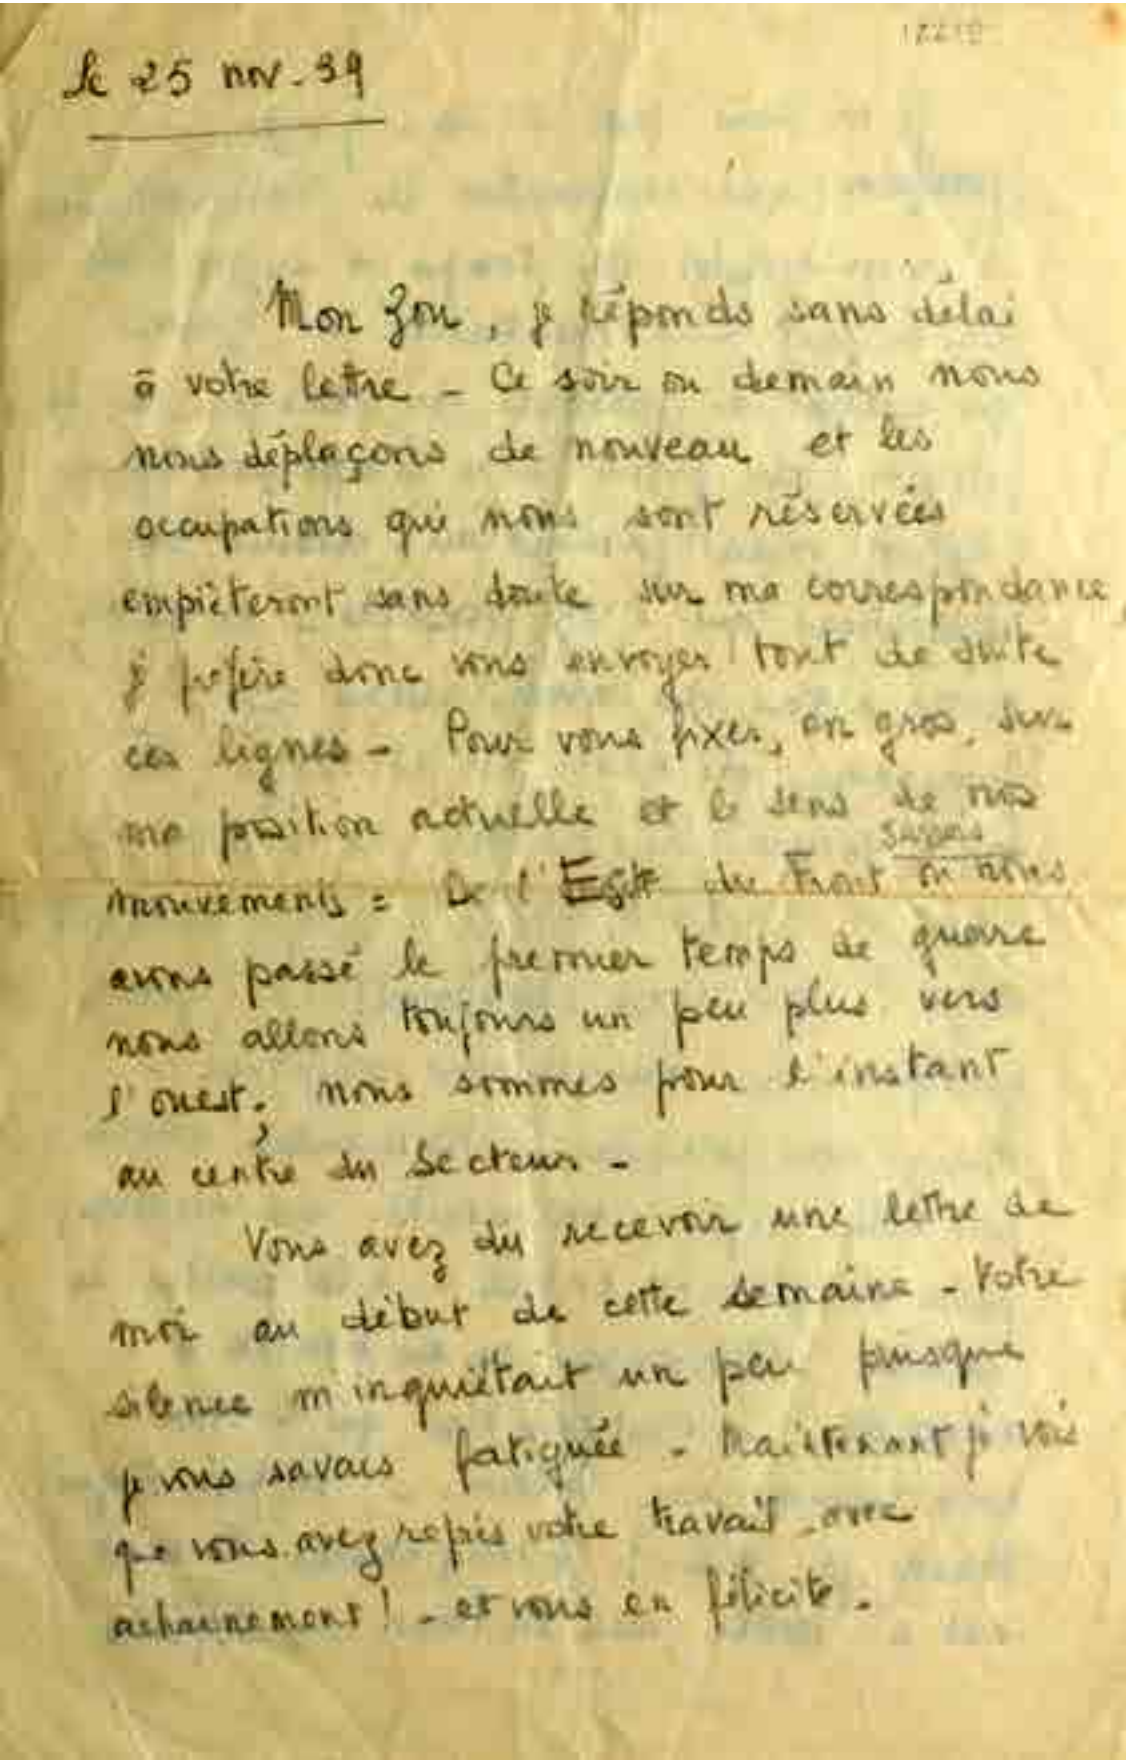 le 25 nov. 39
Mon Zou, je réponds sans délai
à votre lettre - Ce soir ou demain nous
nous déplaçons de nouveau et les
occupations qui nous sont réservées
empièteront sans doute sur ma correspondance
je préfère donc vous envoyer tout de suite
ces lignes - Pour vous fixer, en gros, sur
ma position actuelle et le sens de nos
mouvements : De l'Est du Front où nous
avons passé le premier temps de guerre
nous allons toujours un peu plus vers
l'ouest ; nous sommes pour l'instant
au centre du Secteur -
Vous avez du recevoir une lettre de
moi au début de cette semaine - Votre
silence m'inquiétait un peu puisque
je vous savais fatiguée - Maintenant je vois
que vous avez repris votre travail avec
acharnement ! - et vous en félicite -